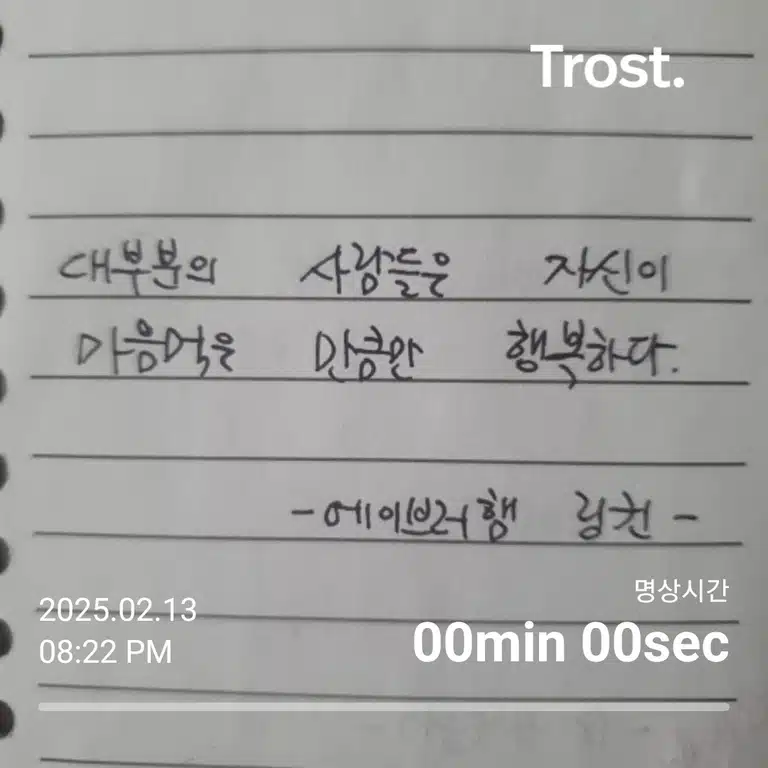 Trost.
대부분의 사람들은 자신이
마음먹은 만큼만 행복하다.
-에이브러햄 링컨-
명상시간
2025.02.13
00min 00sec
08:22 PM